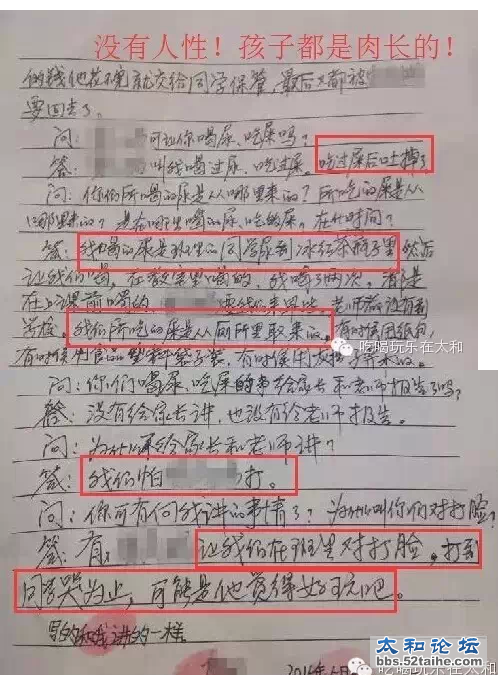 没有人性！孩子都是肉长的！
的钱他花不完就交给同学保管，最后又都被
要回去了。
问： 可让你喝尿、吃屎吗？
答： 叫我喝过尿、吃过屎。吃过屎后吐掉了
问：你们所喝的尿是从哪里来的？所吃的屎是从
哪里来的？是在哪里喝的尿、吃的屎，在什时间？
答：我喝的尿是班里的同学尿到冰红茶瓶子里 然后
让我们喝，在教室里喝的，我喝了两次。都是
在上课前喝的 老师都没有到
学校。我们所吃的屎是从厕所里取来的。有时使用纸包，
有时候用食品塑料袋子装，有时候用 弄来的。
吃喝玩乐在太和
问：你们喝尿、吃屎的事给家长和老师报告了吗？
答：没有给家长讲，也没有给老师报告。
问：为什么不给家长和老师讲？
答：我们怕 打。
问：你可有何我讲的事情了？为啥叫你们对打脸？
答：有， 让我们在班里对打脸，打到
同学哭为止，可能是他觉得好玩吧。
和我讲的一样。
2014年6月
吃喝玩乐在太和
太和论坛
bbs.52taihe.com